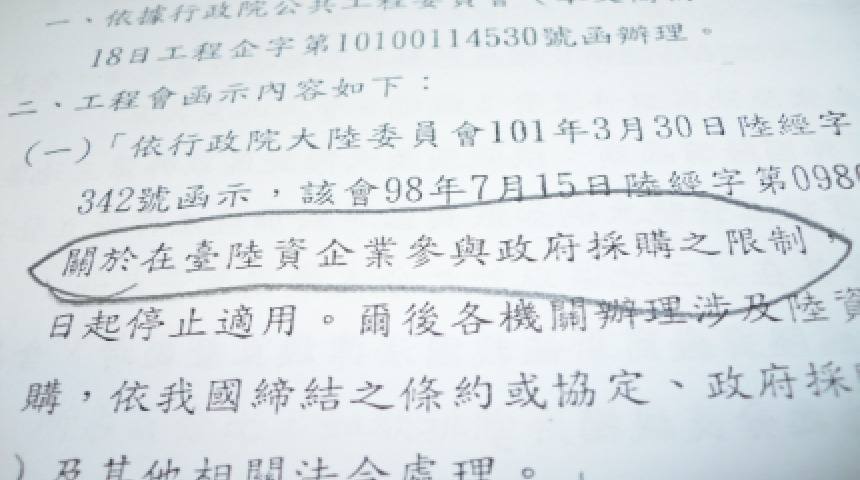 一、依據行政院公共工程委員會（
18日工程企字第10100114530號函辦理。
二、工程會函示內容如下：
(一)「依行政院大陸委員會101年3月30日陸經字
342號函示，該會98年7月15日陸經字第098
關於在臺陸資企業參與政府採購之限制，
日起停止適用。爾後各機關辦理涉及陸資
購，依我國締結之條約或協定、政府採
)及其他相關法令處理。」